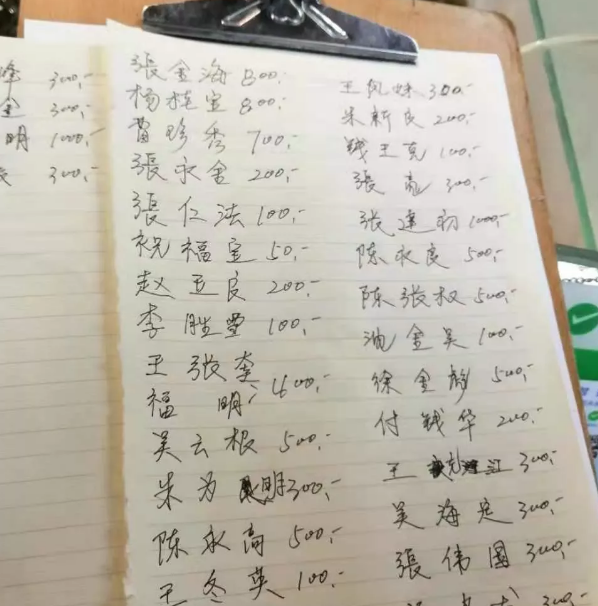 峰 300,-
金 300,-
明 1000,-
300,-
張金海 800,-
杨桂宝 800,-
曹珍秀 700,-
張永金 200,-
張仁法 100,-
祝福宝 50,-
赵亚良 200,-
李胜 100,-
王张奎
福明 400,-
吴云根 500,-
朱为明 300,-
陈永高 500,-
王冬英 100,-
王凤妹 300,-
朱新良 200,-
钱王克 100,-
張亮 300,-
张建初 1000,-
陈永良 500,-
陈张权 500,-
金吴 100,-
徐金静 500,-
付钱华 200,-
王江 300,-
吴海 300,-
張伟国 300,-
300,-